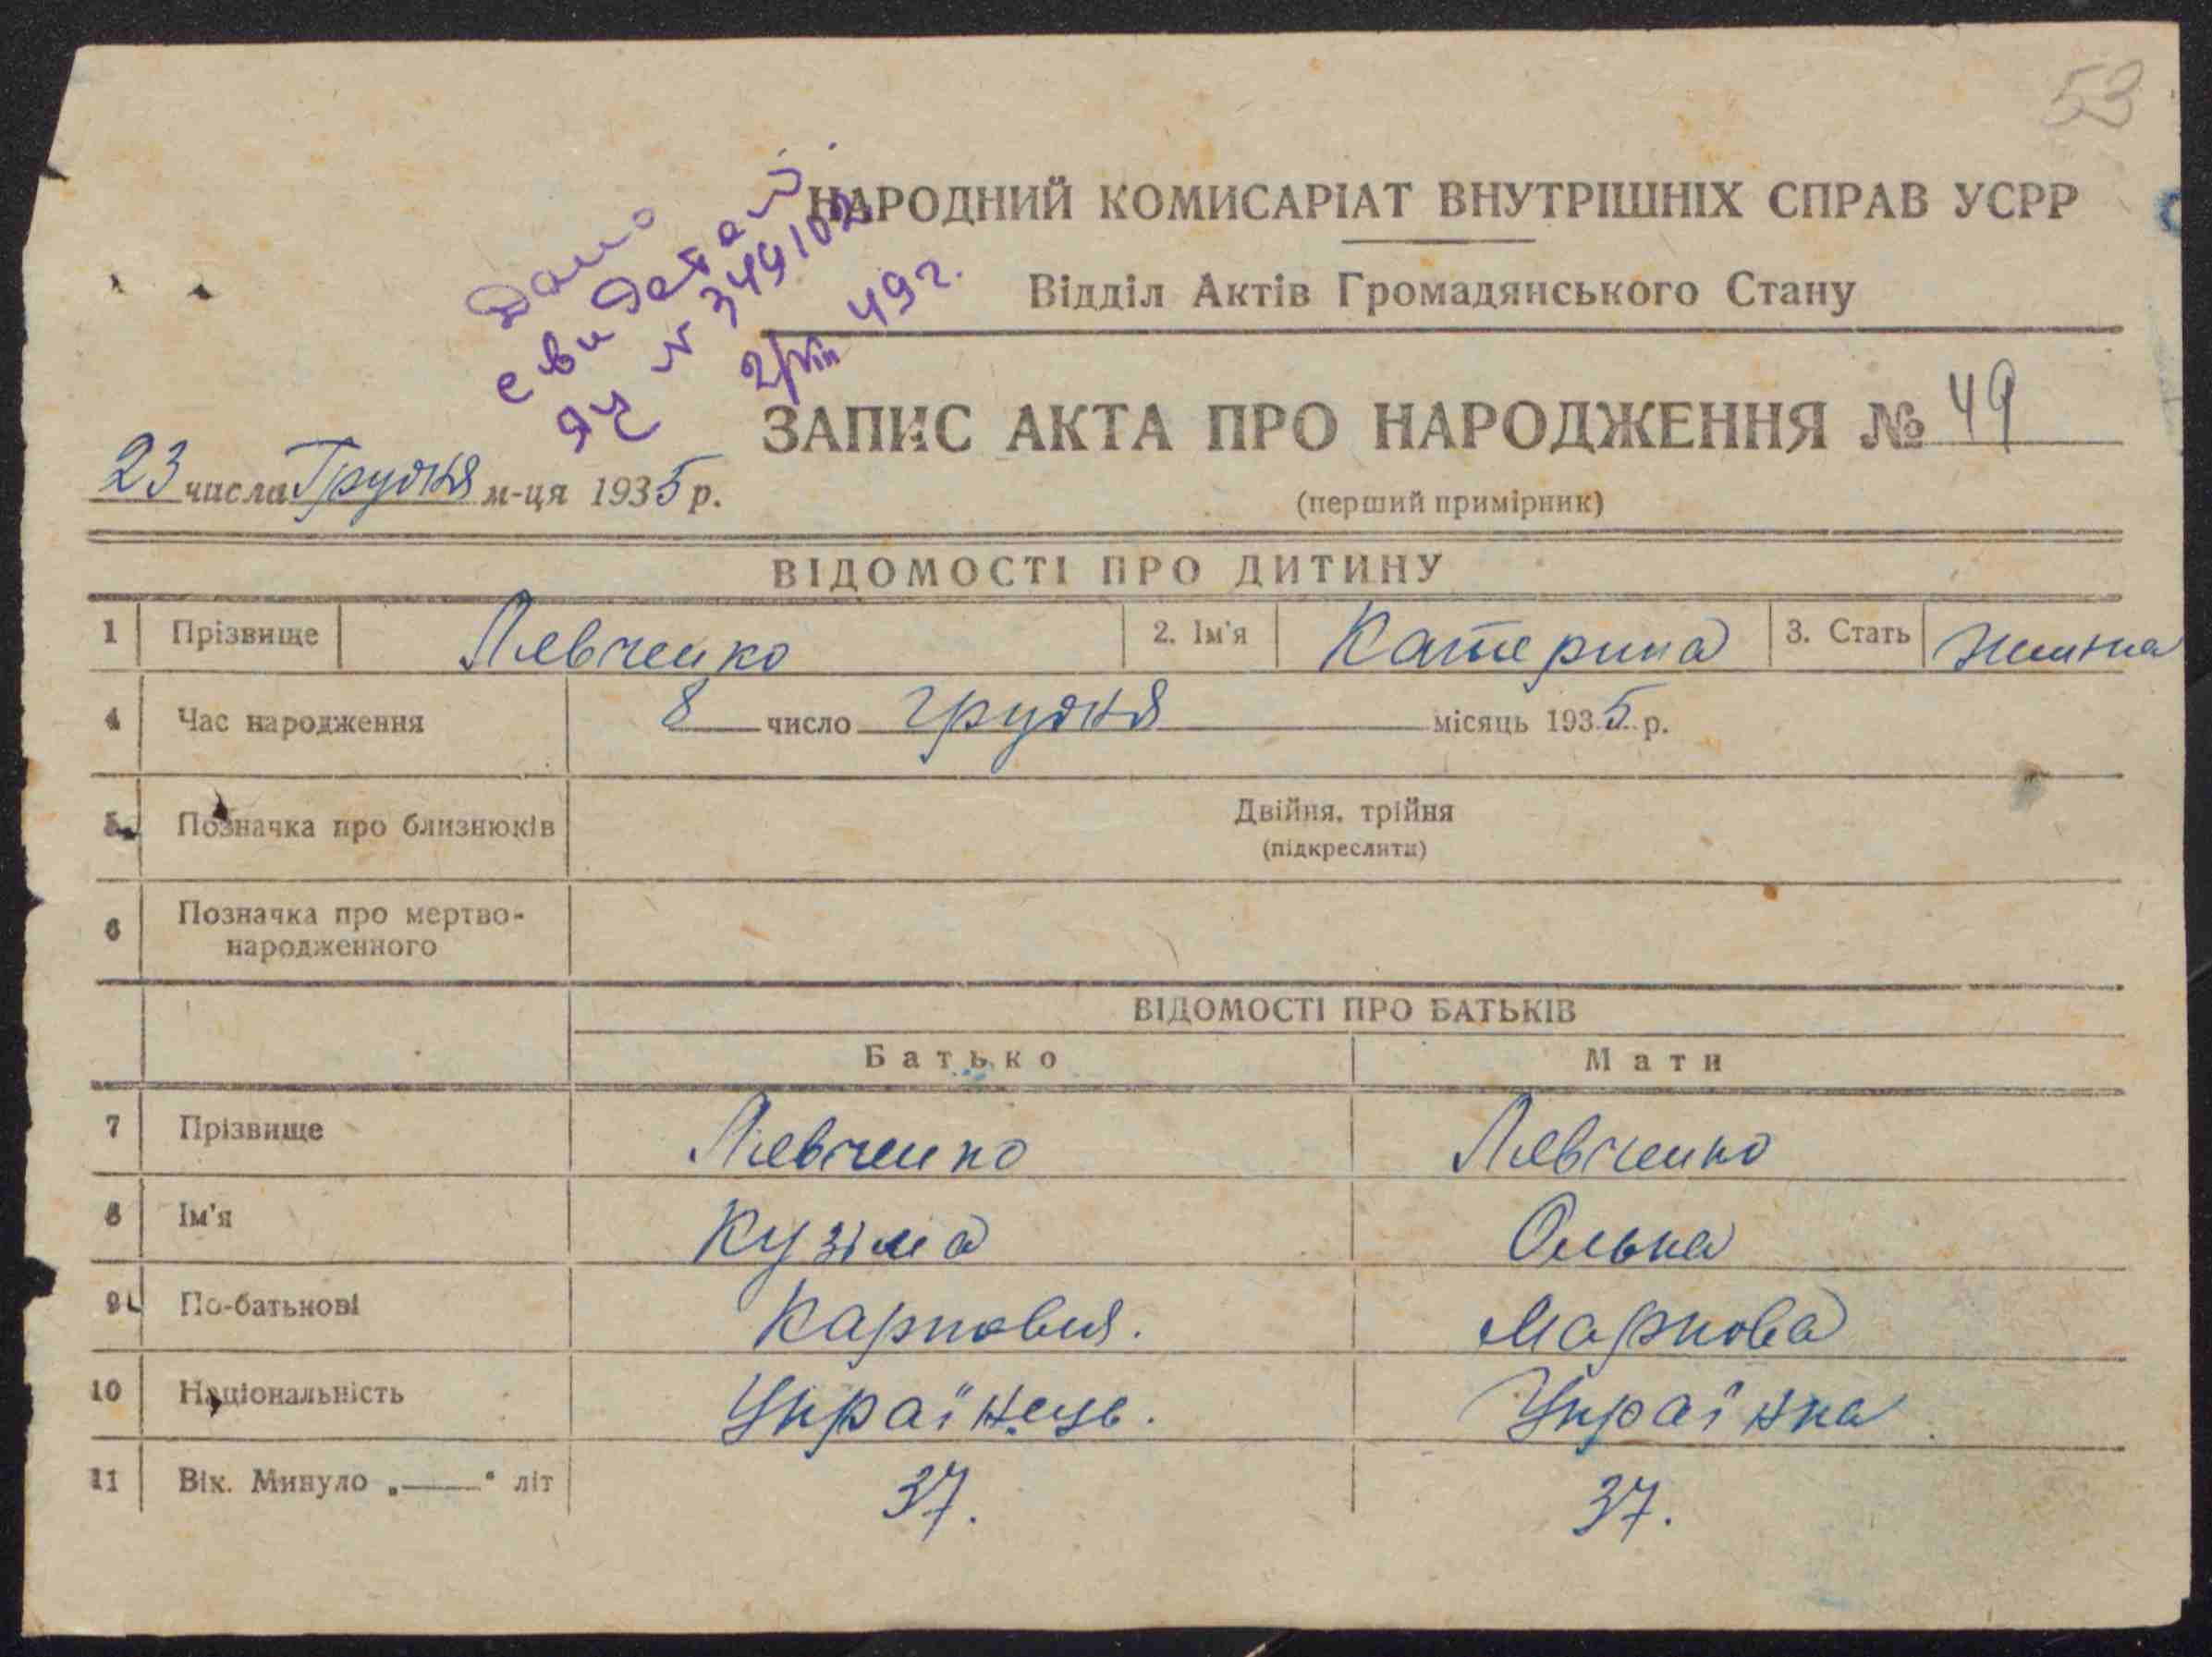 53
НАРОДНИЙ КОМИСАРІАТ ВНУТРІШНІХ СПРАВ УСРР
Відділ Актів Громадянського Стану
Дано
свидетел.
ЯЧ № 349102
2/VIII 49 г.
ЗАПИС АКТА ПРО НАРОДЖЕННЯ № 49
23 числа Грудня м-ця 1935 р.
(перший примірник)
ВІДОМОСТІ ПРО ДИТИНУ
1 Прізвище Левченко 2. Ім'я Катерина 3. Стать
4 Час народження 8 число грудня місяць 1935 р.
5 Позначка про близнюків Двійня, трійня
(підкреслити)
6 Позначка про мертво-
народженного
ВІДОМОСТІ ПРО БАТЬКІВ
Батько Мати
7 Прізвище Левченко Левченко
8 Ім'я Кузіма Олька
9 По-батькові Карпович. Маркова
10 Національність Українець. Українка
11 Вік. Минуло „——“ літ 37. 37.